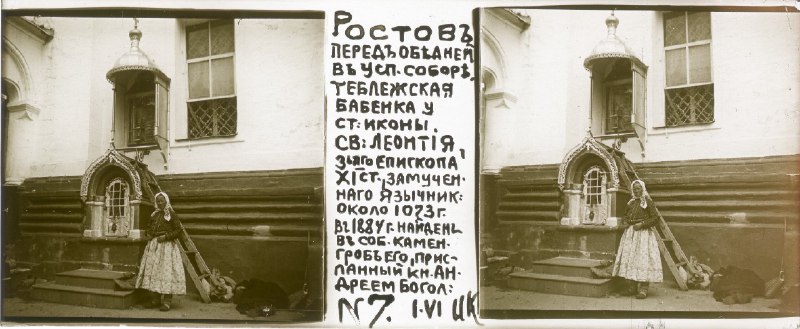 Ростовъ
передъ обѣдней
въ Усп. соборѣ,
теблежская
бабенка у
ст: иконы.
св: Леонтія,
3ьяго епископа
XI ст., замучен-
наго язычник:
около 1073 г.
въ 1884 г. найденъ
въ соб. камен.
гробъ его, прис-
ланный кн. Ан-
дреем Богол:
N 7. I·VI ЦК